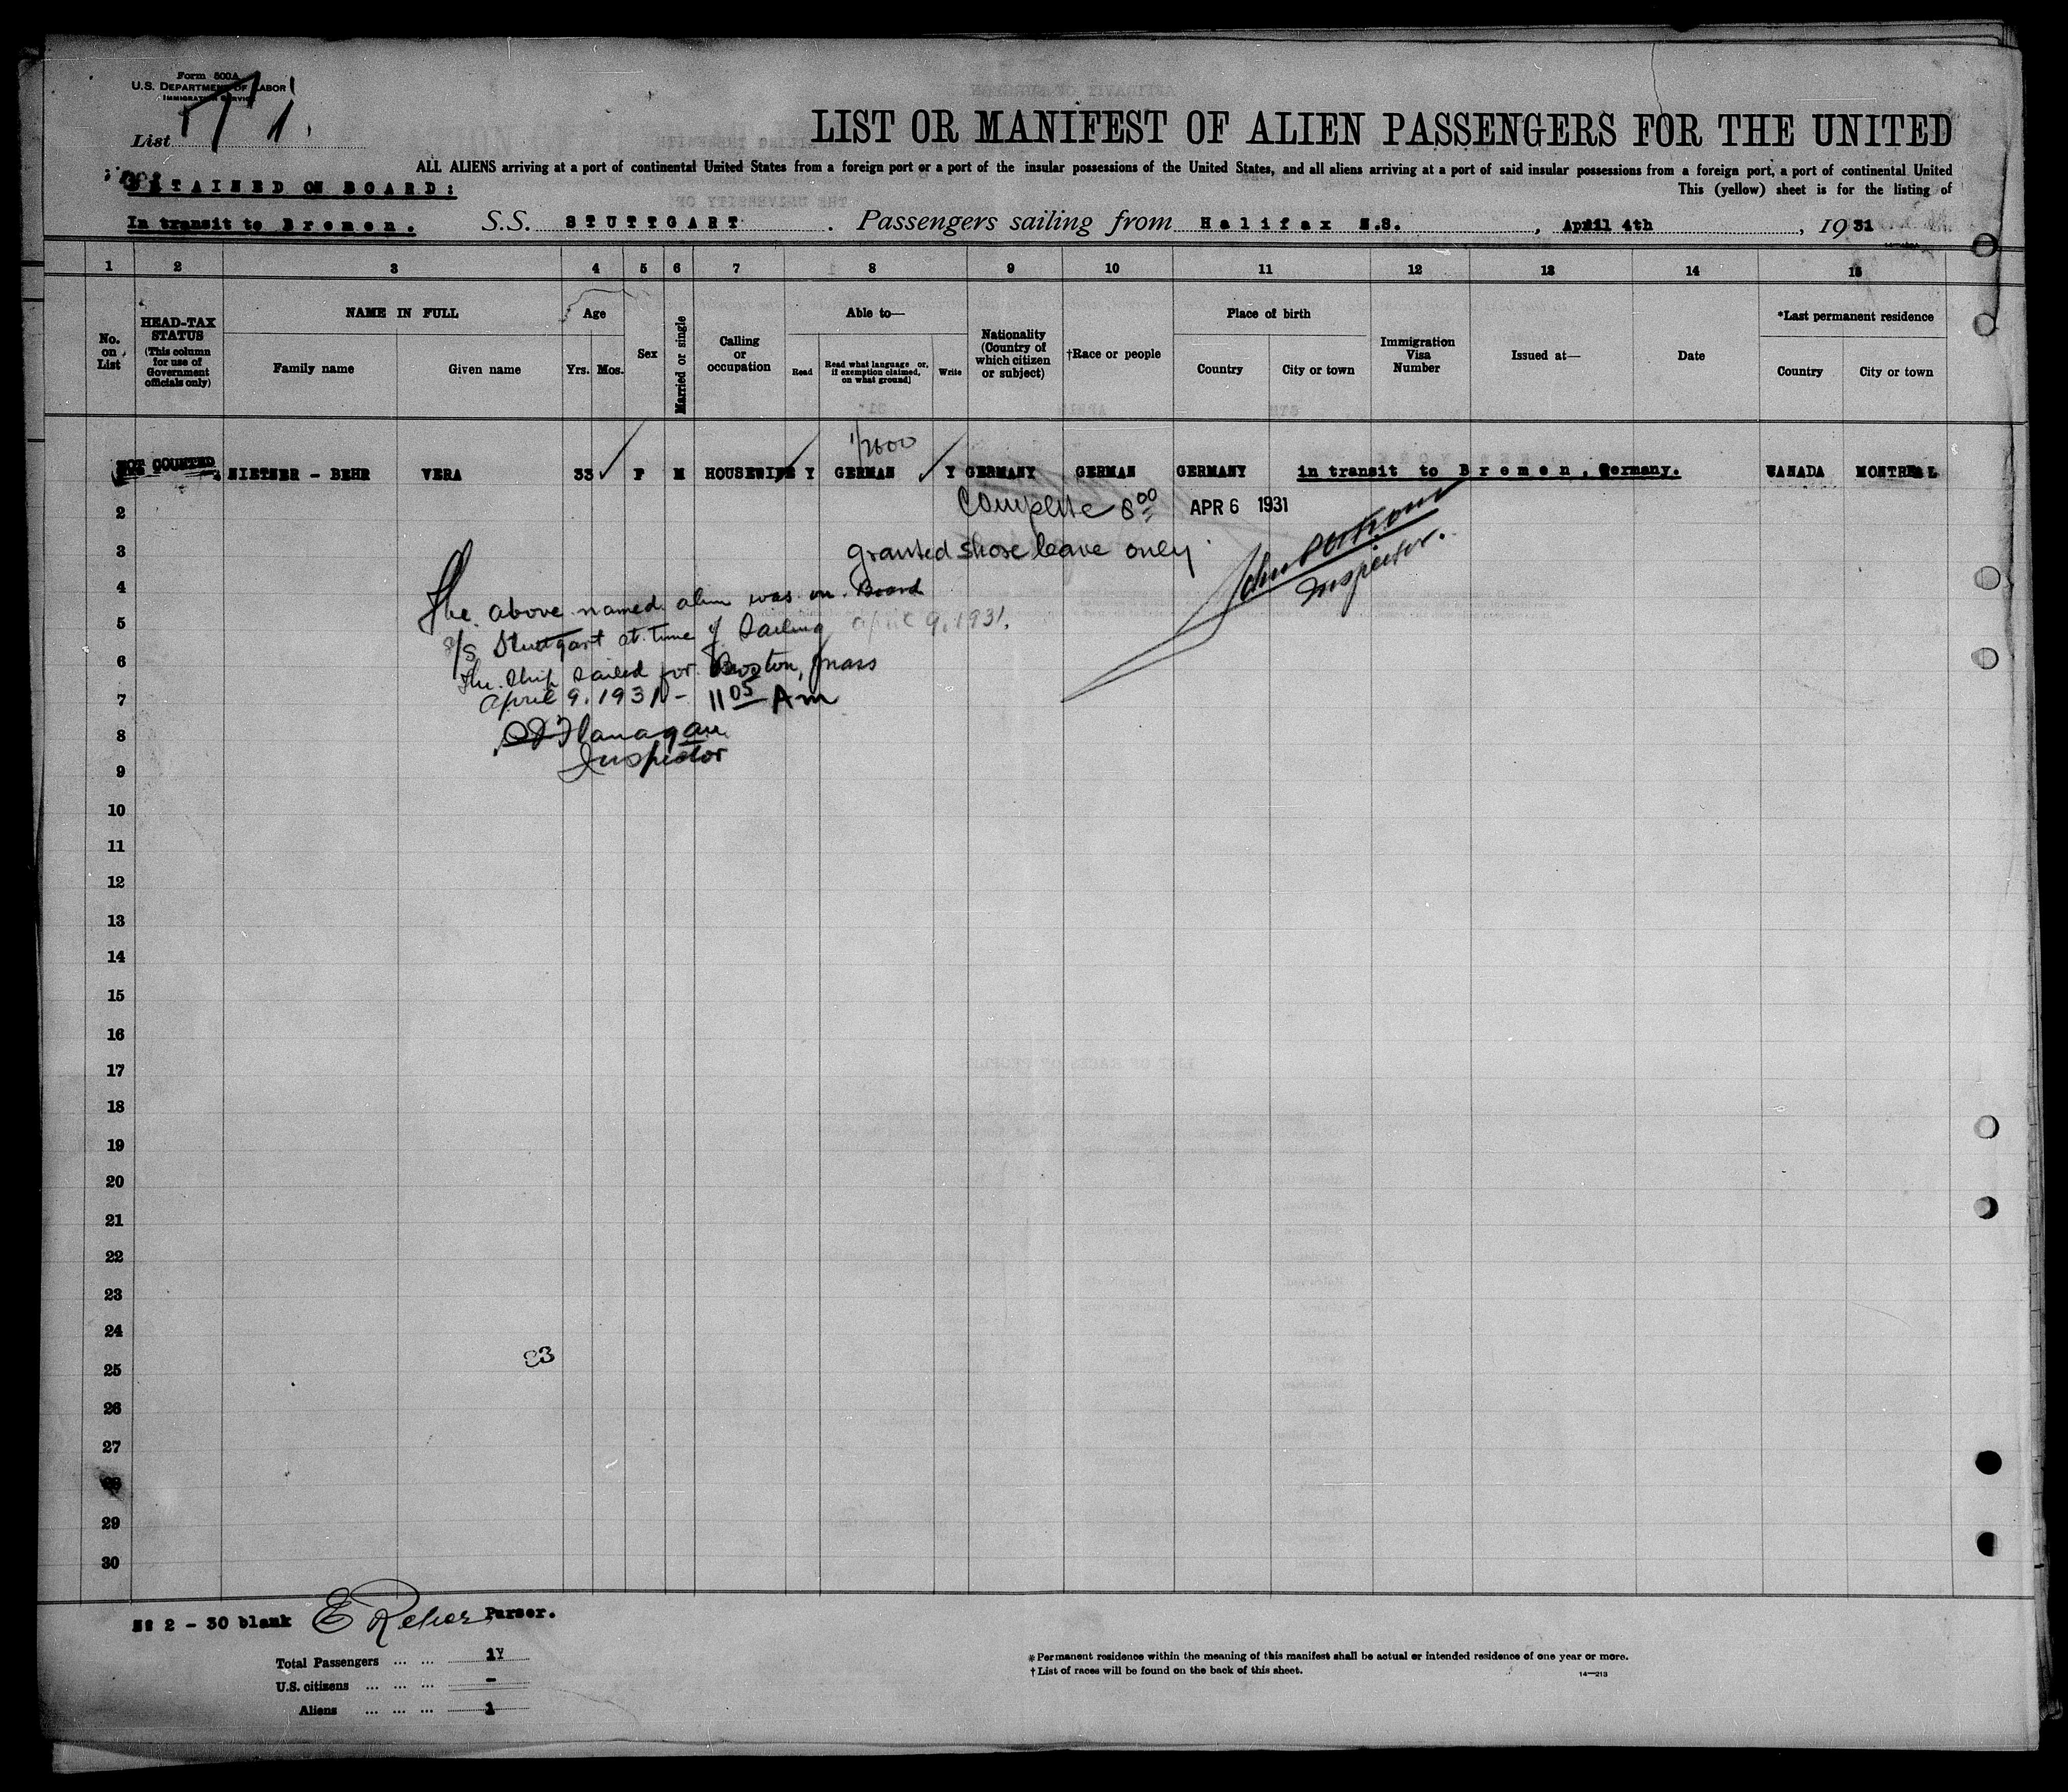 Form 500A
U.S. DEPARTMENT OF LABOR
IMMIGRATION SERVICE
List
LIST OR MANIFEST OF ALIEN PASSENGERS FOR THE UNITED
ALL ALIENS arriving at a port of continental United States from a foreign port or a port of the insular possessions of the United States, and all aliens arriving at a port of said insular possessions from a foreign port, a port of continental United
DETAINED ON BOARD:
This (yellow) sheet is for the listing of
In transit to Bremen. S.S. STUTTGART. Passengers sailing from Halifax N.S., April 4th, 1931
1 2 3 4 5 6 7 8 9 10 11 12 13 14 15
No. on List
HEAD-TAX STATUS (This column for use of Government officials only)
NAME IN FULL
Family name Given name
Age
Yrs. Mos.
Sex
Married or single
Calling or occupation
Able to—
Read
Read what language or, if exemption claimed, on what ground]
Write
Nationality (Country of which citizen or subject)
†Race or people
Place of birth
Country City or town
Immigration Visa Number
Issued at—
Date
*Last permanent residence
Country City or town
1/2600
NOT COUNTED NIETNER - BEHR VERA 33 F M HOUSEWIFE Y GERMAN Y GERMANY GERMAN GERMANY in transit to Bremen, Germany. CANADA MONTREAL
2 Complete 8 00 APR 6 1931
3 granted shore leave only
Inspector.
4 The above named alien was on Board
5 S/S Stuttgart at time of Sailing April 9, 1931.
6 The Ship Sailed for Boston, Mass
7 April 9, 1931 - 11 05 AM
8 Flanagan
Inspector
9
10
11
12
13
14
15
16
17
18
19
20
21
22
23
24
25
26
27
28
29
30
No 2 - 30 blank Purser.
Total Passengers ... ... 1
U.S. citizens ... ... ... -
Aliens ... ... ... 1
* Permanent residence within the meaning of this manifest shall be actual or intended residence of one year or more.
† List of races will be found on the back of this sheet.
14—213